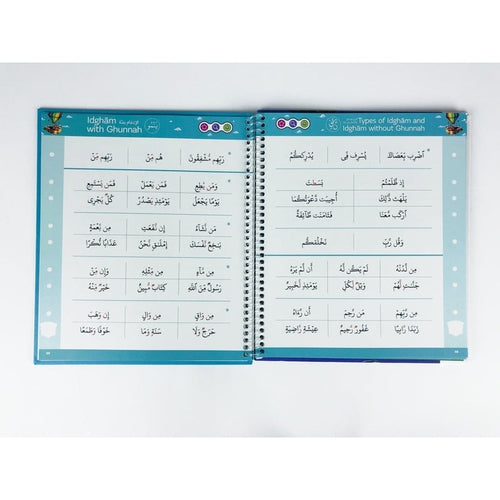 Idghām
with Ghunnah
رَبِّهِم مُّشْفِقُونَ هُم مِّنْ رَبِّهِم مِّنْ
وَمَن يُطِعِ فَمَن يَعْمَلْ فَمَن يَسْتَمِعِ
يَوْمًا يَجْعَلُ يَوْمَئِذٍ يَصْدُرُ كُلٌّ يَجْرِى
مَن نَّشَآءُ إِن نَّفَعَتِ مِن نِّعْمَةٍ
نَفْسَكَ إِمْلَٰقٍ نَّحْنُ عَذَابًا نُّكْرًا
مِن مَّآءٍ مِن مِّثْلِهِ وَإِن مِّن
رَسُولٌ مِّنَ اللَّهِ كِتَابٌ مُّبِينٌ خَيْرٌ مِّنْهُ
مِن وَاقٍ مِن وَالٍ إِن وَهَبَ
حَرَجٌ وَلَا خَوْفًا وَطَمَعًا
Types of Idghām and
Idghām without Ghunnah
اضْرِب بِّعَصَاكَ يُسْرِف فِّى يُدْرِككُّمُ
إِذ ظَّلَمْتُمْ بَسَطتَ
يَلْهَث ذَّٰلِكَ أُجِيبَت دَّعْوَتُكُمَا
ارْكَب مَّعَنَا فَـَٔامَنَت طَّآئِفَةٌ
وَقُل رَّبِّ نَخْلُقكُّم
مِن لَّدُنْهُ لَمْ يَكُن لَّهُ أَن لَّمْ يَرَهُ
جَنَّٰتٍ لَّهُمْ وَيْلٌ لِّكُلِّ يَوْمَئِذٍ لَّخَبِيرٌ
مِن رَّبِّهِمْ مَن رَّحِمَ أَن رَّءَاهُ
زَبَدًا رَّابِيًا غَفُورٌ رَّحِيمٌ عِيشَةٍ رَّاضِيَةٍ